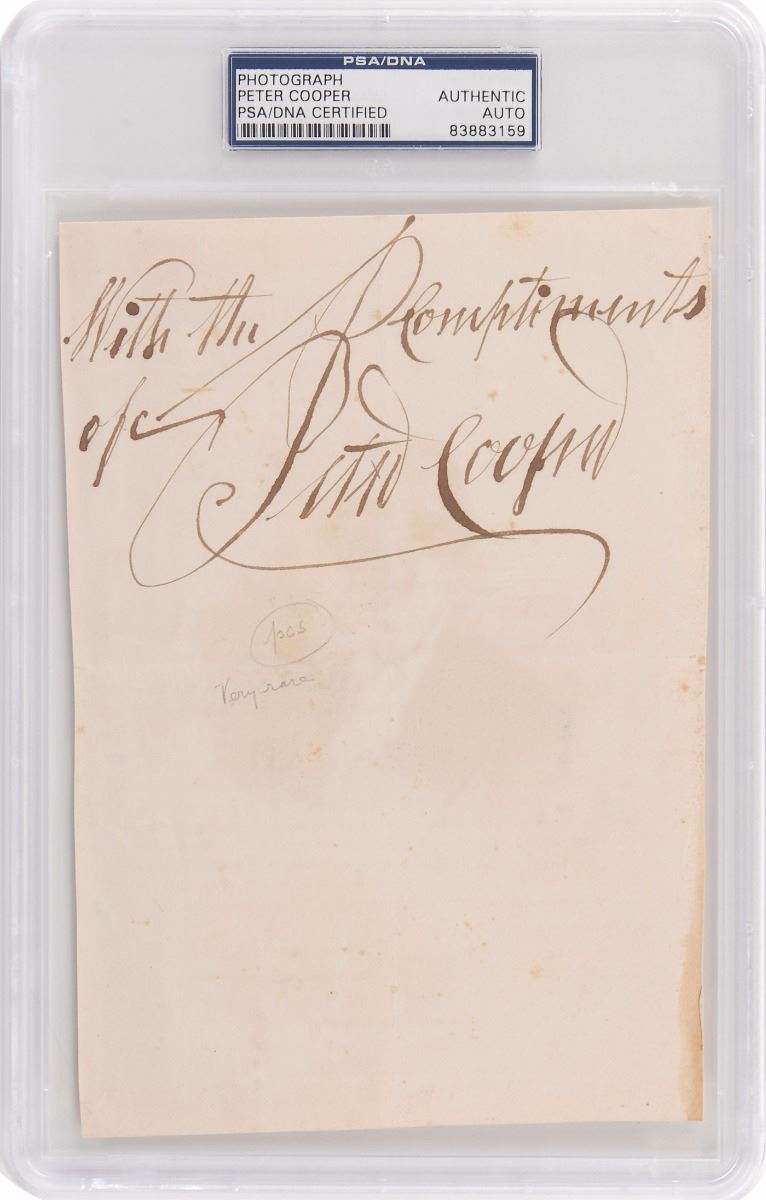 PSA/DNA
PHOTOGRAPH
PETER COOPER
AUTHENTIC
PSA/DNA CERTIFIED
AUTO
83883159
With the Compliments
of
Peter Cooper
pcs
Very rare